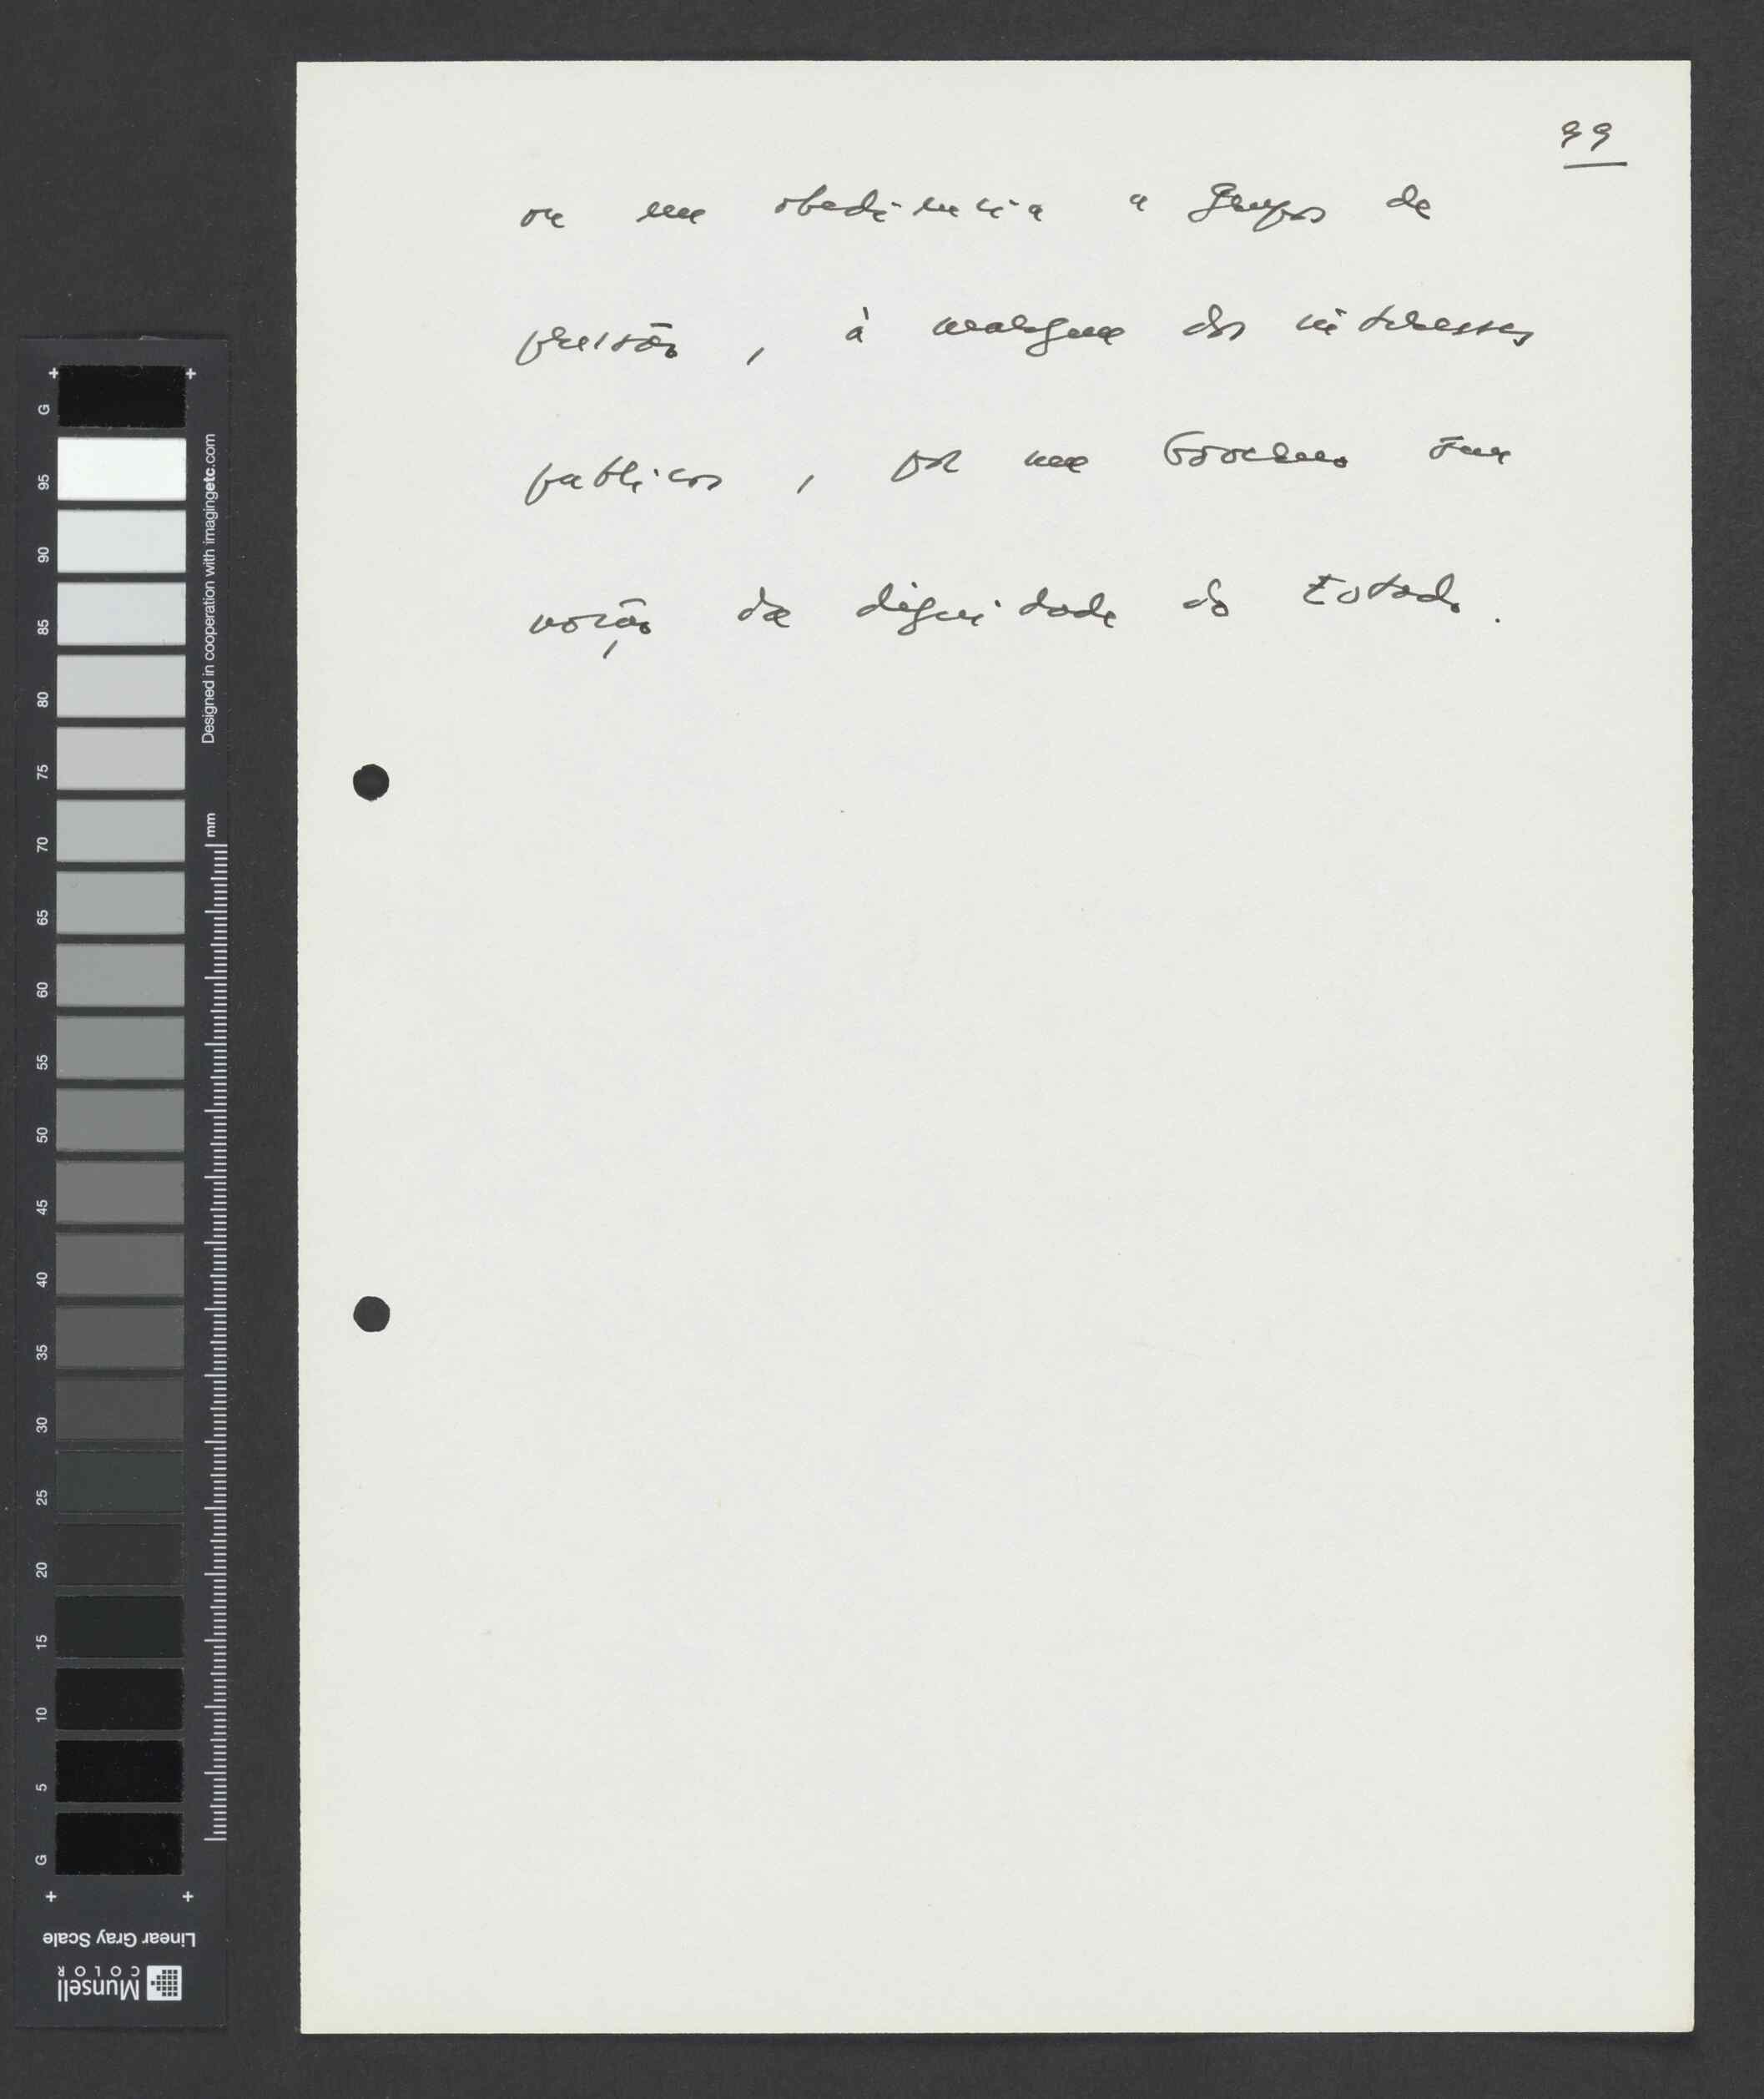 99
ou em obediência a grupos de
pressão, à margem dos interesses
publicos, por um Governo sem
noção da dignidade do Estado.
G
95
90
85
80
75
70
65
60
55
50
45
40
35
30
25
20
15
10
5
G
Designed in cooperation with imagingetc.com
mm
Linear Gray Scale
Munsell
COLOR